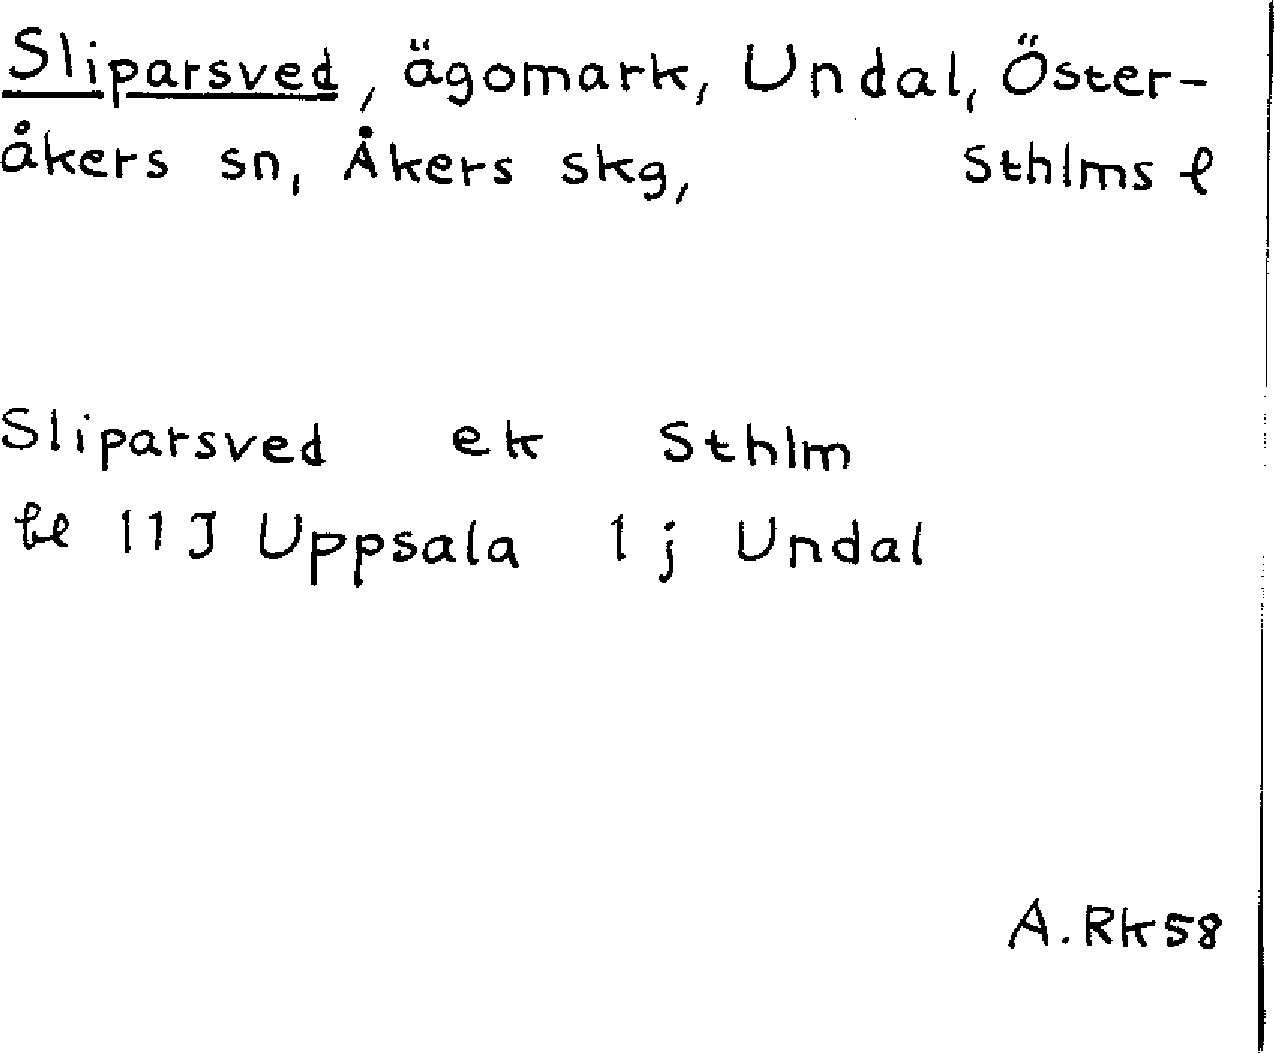 Sliparsved, ägomark, Undal, Öster-
åkers sn, Åkers skg, Sthlms l
Sliparsved ek Sthlm
bl 11J Uppsala 1j Undal
A.Rk58